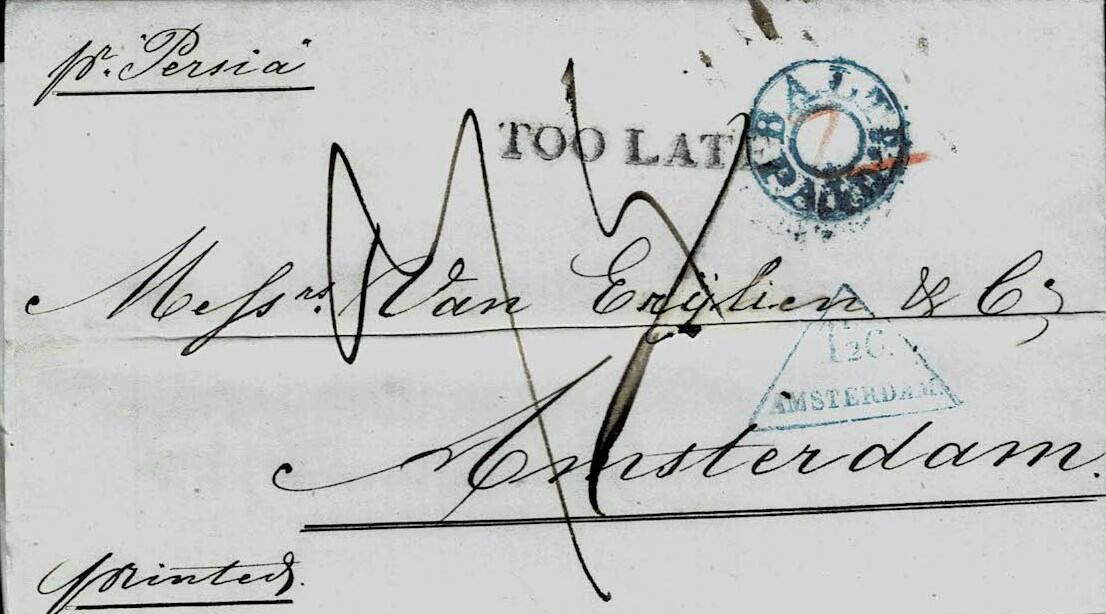 pr. "Persia"
TOO LATE
BALTRE
PAID
Messrs. Van Erijlien & Co
1½ C.
AMSTERDAM.
Amsterdam.
printed.